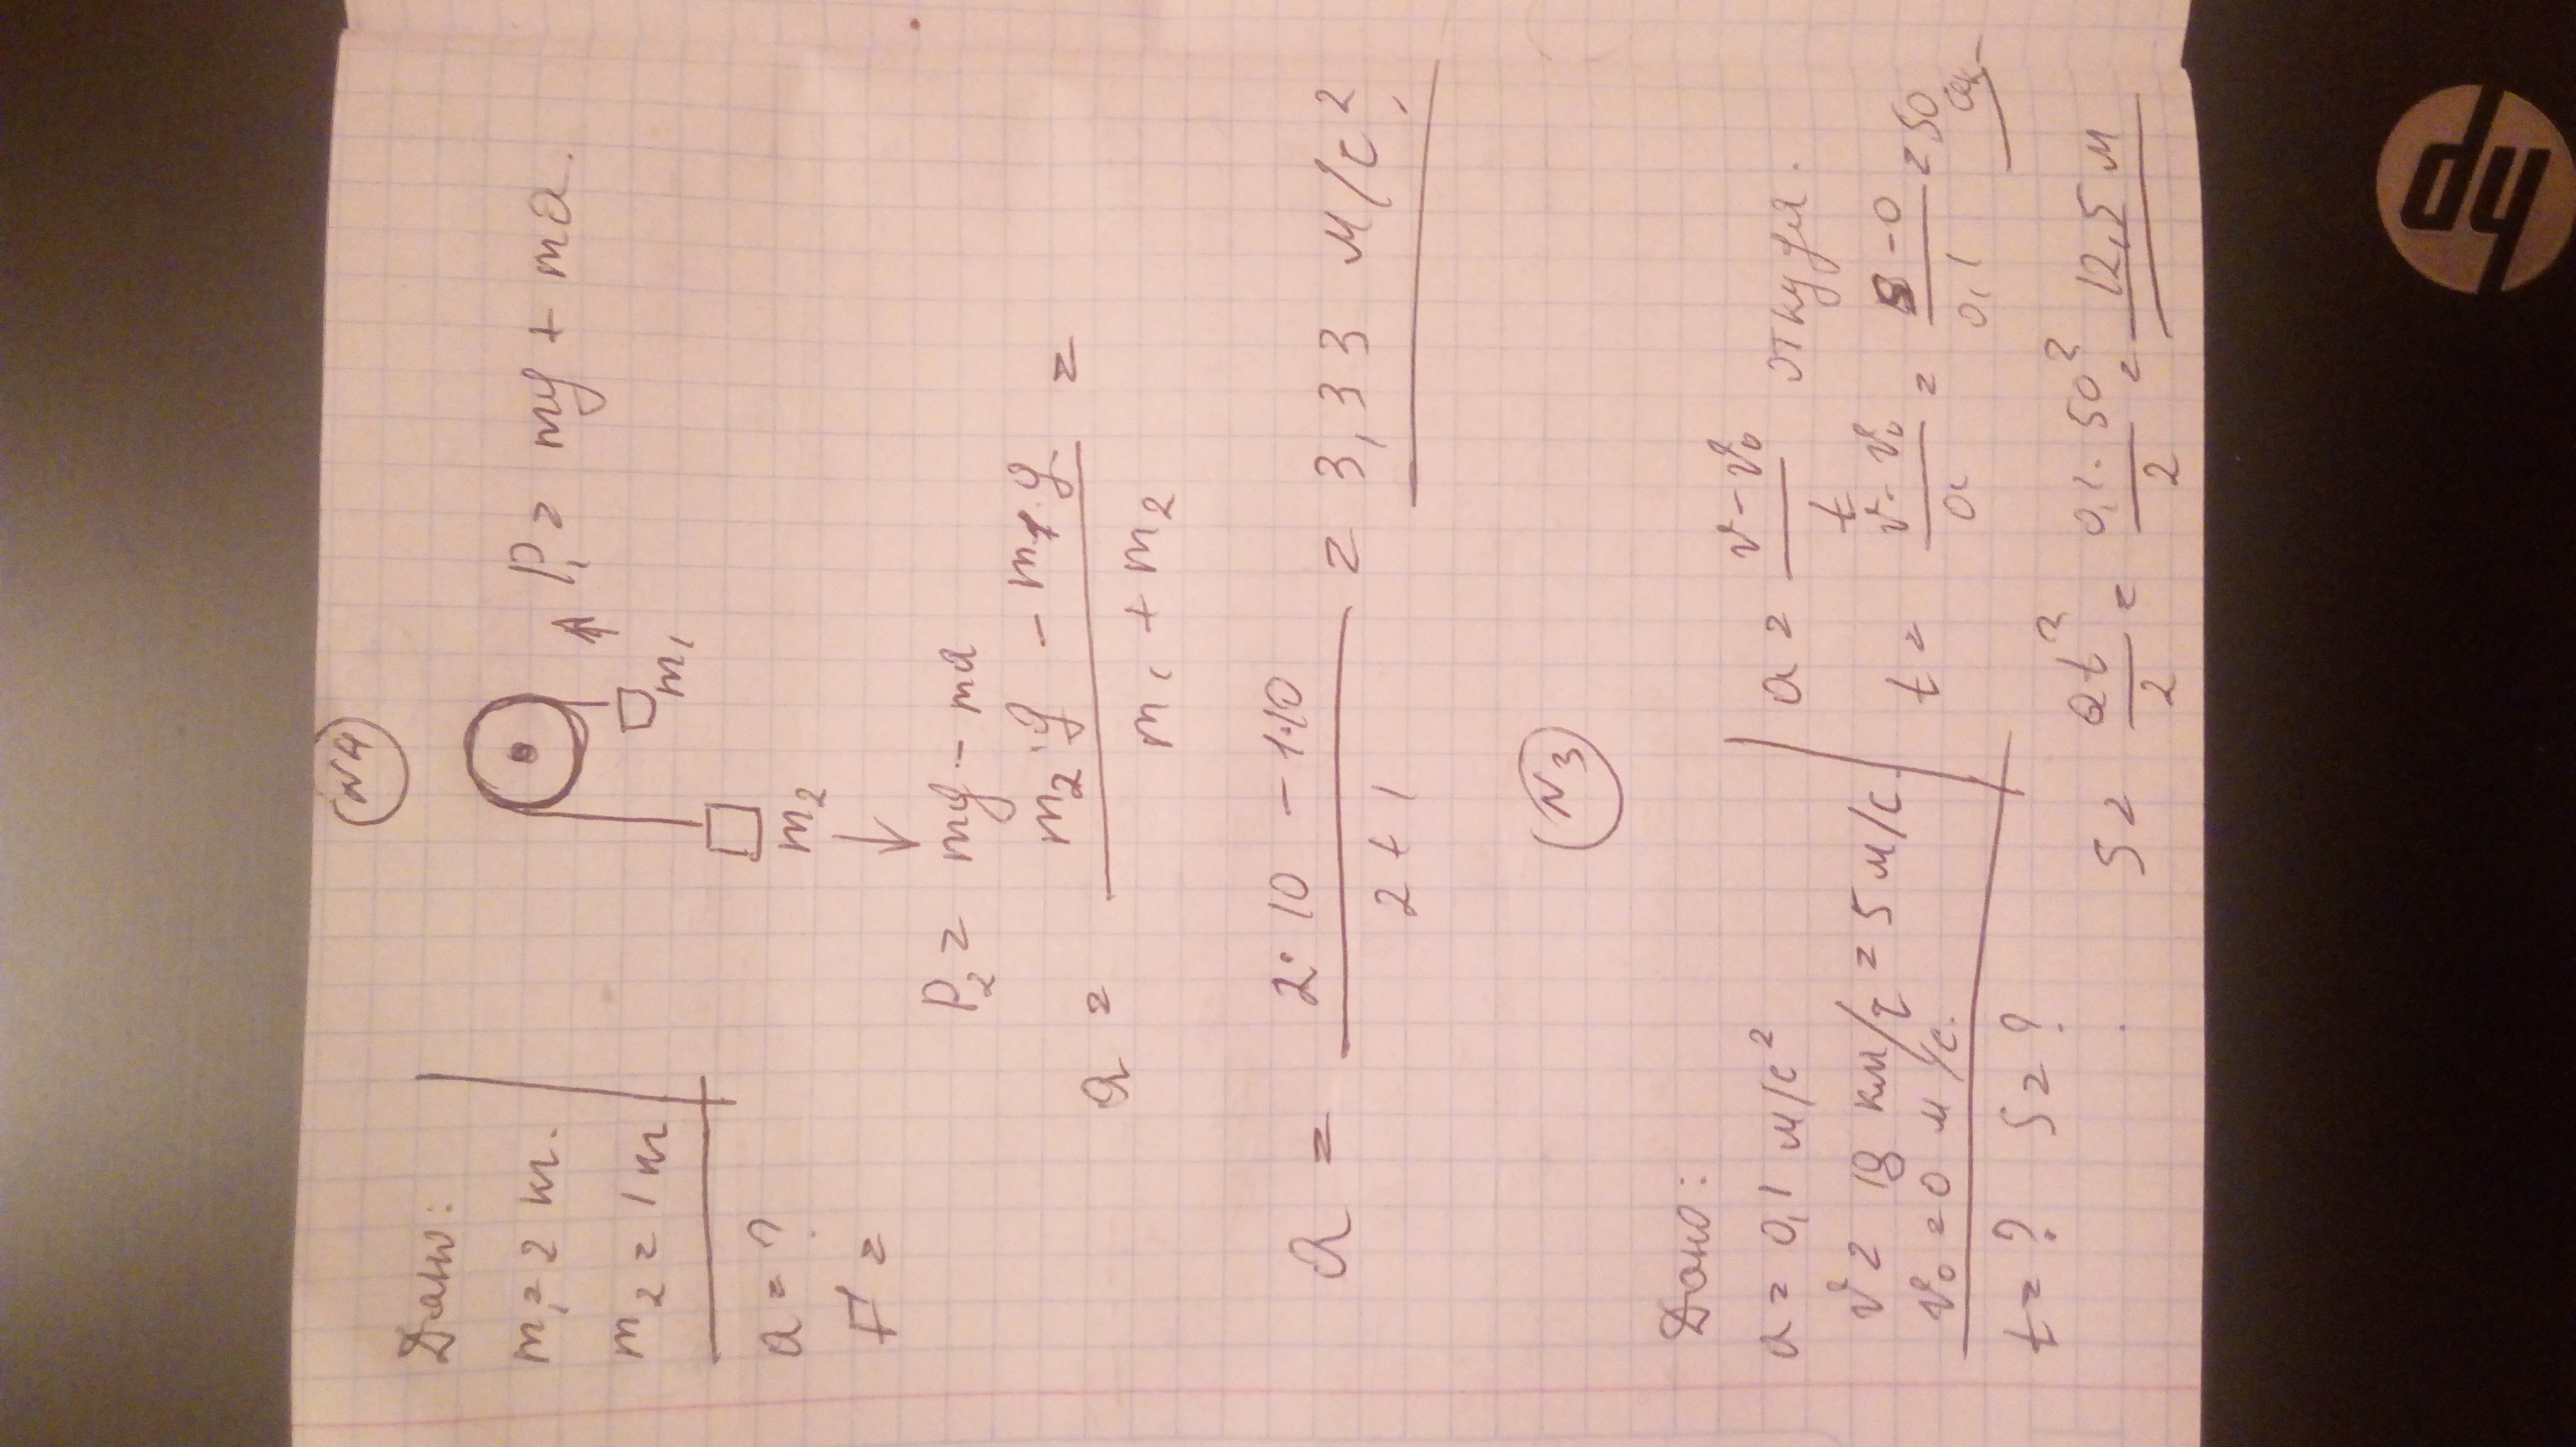 N4
Дано:
m₁ = 2 кг.
m₂ = 1 кг
a = ?
F =
m₁
m₂
P₁ = mg + ma.
P₂ = mg - ma
a = (m₂·g - m₁·g)/(m₁ + m₂) =
a = (2·10 - 1·10)/(2 + 1) = 3,33 м/с²
N3
Дано:
a = 0,1 м/с²
v = 18 км/ч = 5 м/с
v₀ = 0 м/с.
t = ? S = ?
a = (v - v₀)/t откуда.
t = (v - v₀)/a = (5 - 0)/0,1 = 50 сек
S = at²/2 = 0,1·50²/2 = 12,5 м
hp